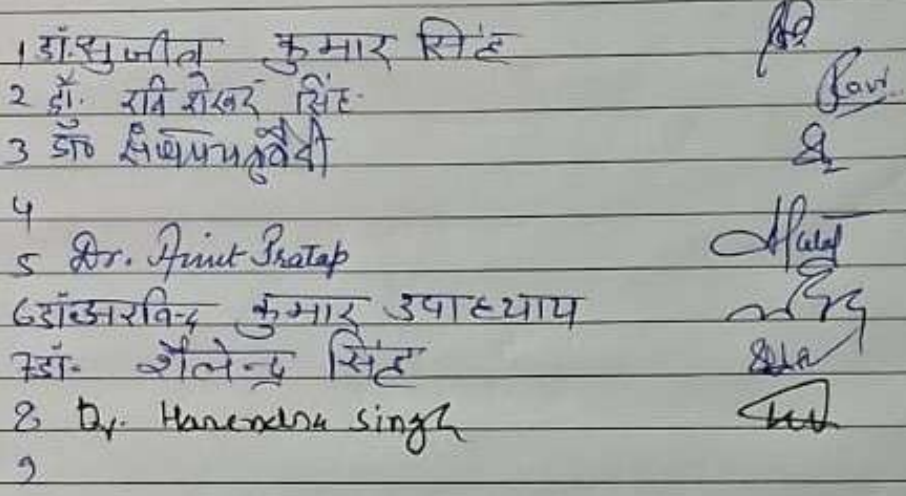 1 डॉ. सुजीत कुमार सिंह
2 डॉ. रवि शेखर सिंह Ravi
3 डॉ० चतुर्वेदी
4
5 Dr. Amit Pratap
6 डॉ. अरविन्द कुमार उपाध्याय
7 डॉ. शैलेन्द्र सिंह
8 Dr. Harendra Singh
9